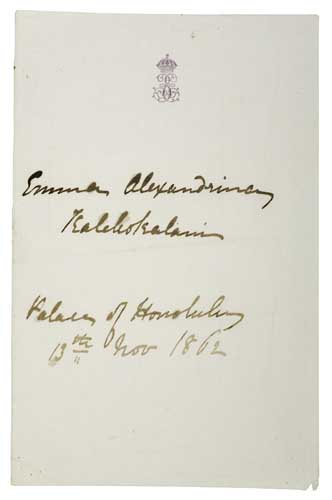 Emma Alexandrina
Kaleleokalani
Palace of Honolulu
13th Nov 1862